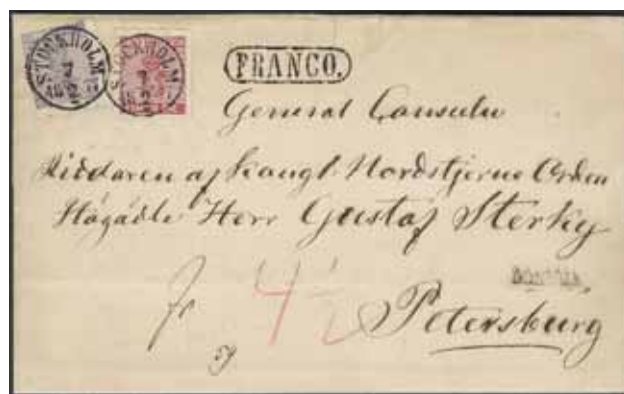 STOCKHOLM STOCKHOLM
7 2 7 2
FRANCO.
General Consuln
Riddaren af Kongl. Nordstjerne Orden
Högädle Herr Gustaf Sterky
fr 4 1/2
Petersburg
59